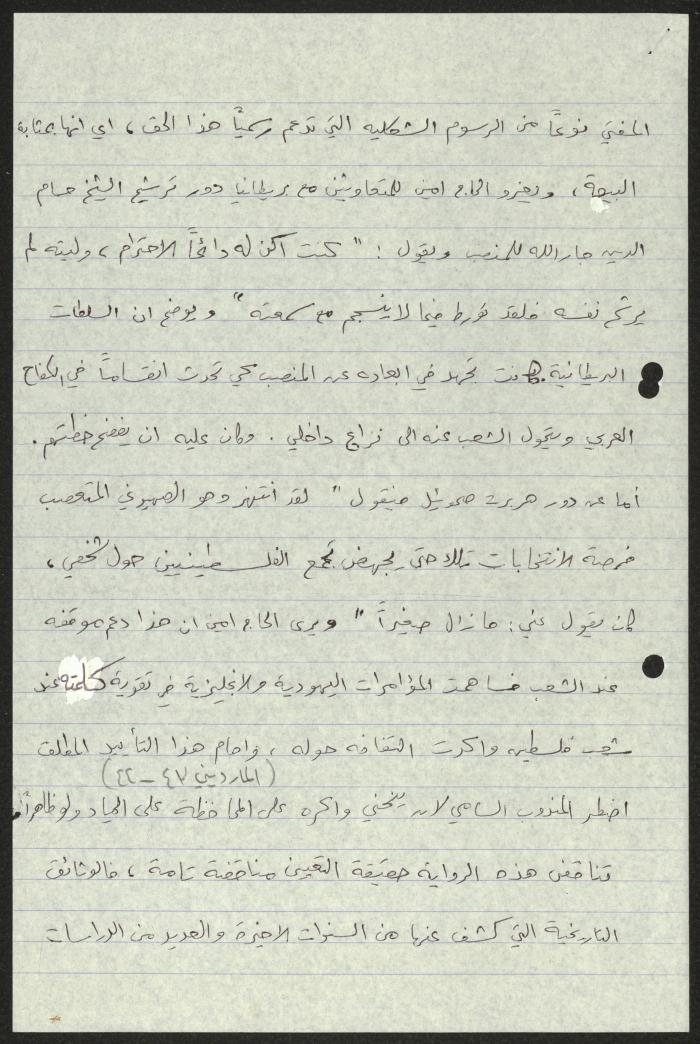 المفتي نوعاً من الرسوم الشكليه التي تدعم رسمياً هذا الحق، اي انها بمثابة
البيعة، ويعزو الحاج امين للمتعاونين مع بريطانيا دور ترشيح الشيخ حسام
الدين جارالله للمنصب ويقول : " كنت اكن له دائماً الاحترام، وليته لم
يرشح نفسه فلقد تورط فيما لا ينسجم مع سمعته " ويوضح ان السلطات
البريطانية كانت تجهد في ابعاده عن المنصب كي تحدث انقساماً في الكفاح
العربي ويتحول الشعب عنه الى نزاع داخلي . وكان عليه ان يفضح خطتهم .
أما عن دور هربرت صموئيل فيقول " لقد انتهز وهو الصهيوني المتعصب
فرصة الانتخابات تلك حتى يجهض تجمع الفلسطينيين حول شخصي،
كان يقول عني : مازال صغيراً " ويرى الحاج امين ان هذا دعم موقفه
عند الشعب فساهمت المؤامرات اليهودية والانجليزية في تقوية كلمته عند
شعب فلسطين واكدت التفافه حوله ، وامام هذا التأييد المطلق
(المارديني ٤٧ - ٤٤)
اضطر المندوب السامي لان ينحني واكره على المحافظة على الحياد ولو ظاهراً.
تناقض هذه الرواية حقيقة التعيين مناقضة تامة ، فالوثائق
التاريخية التي كشف عنها في السنوات الاخيرة والعديد من الدراسات